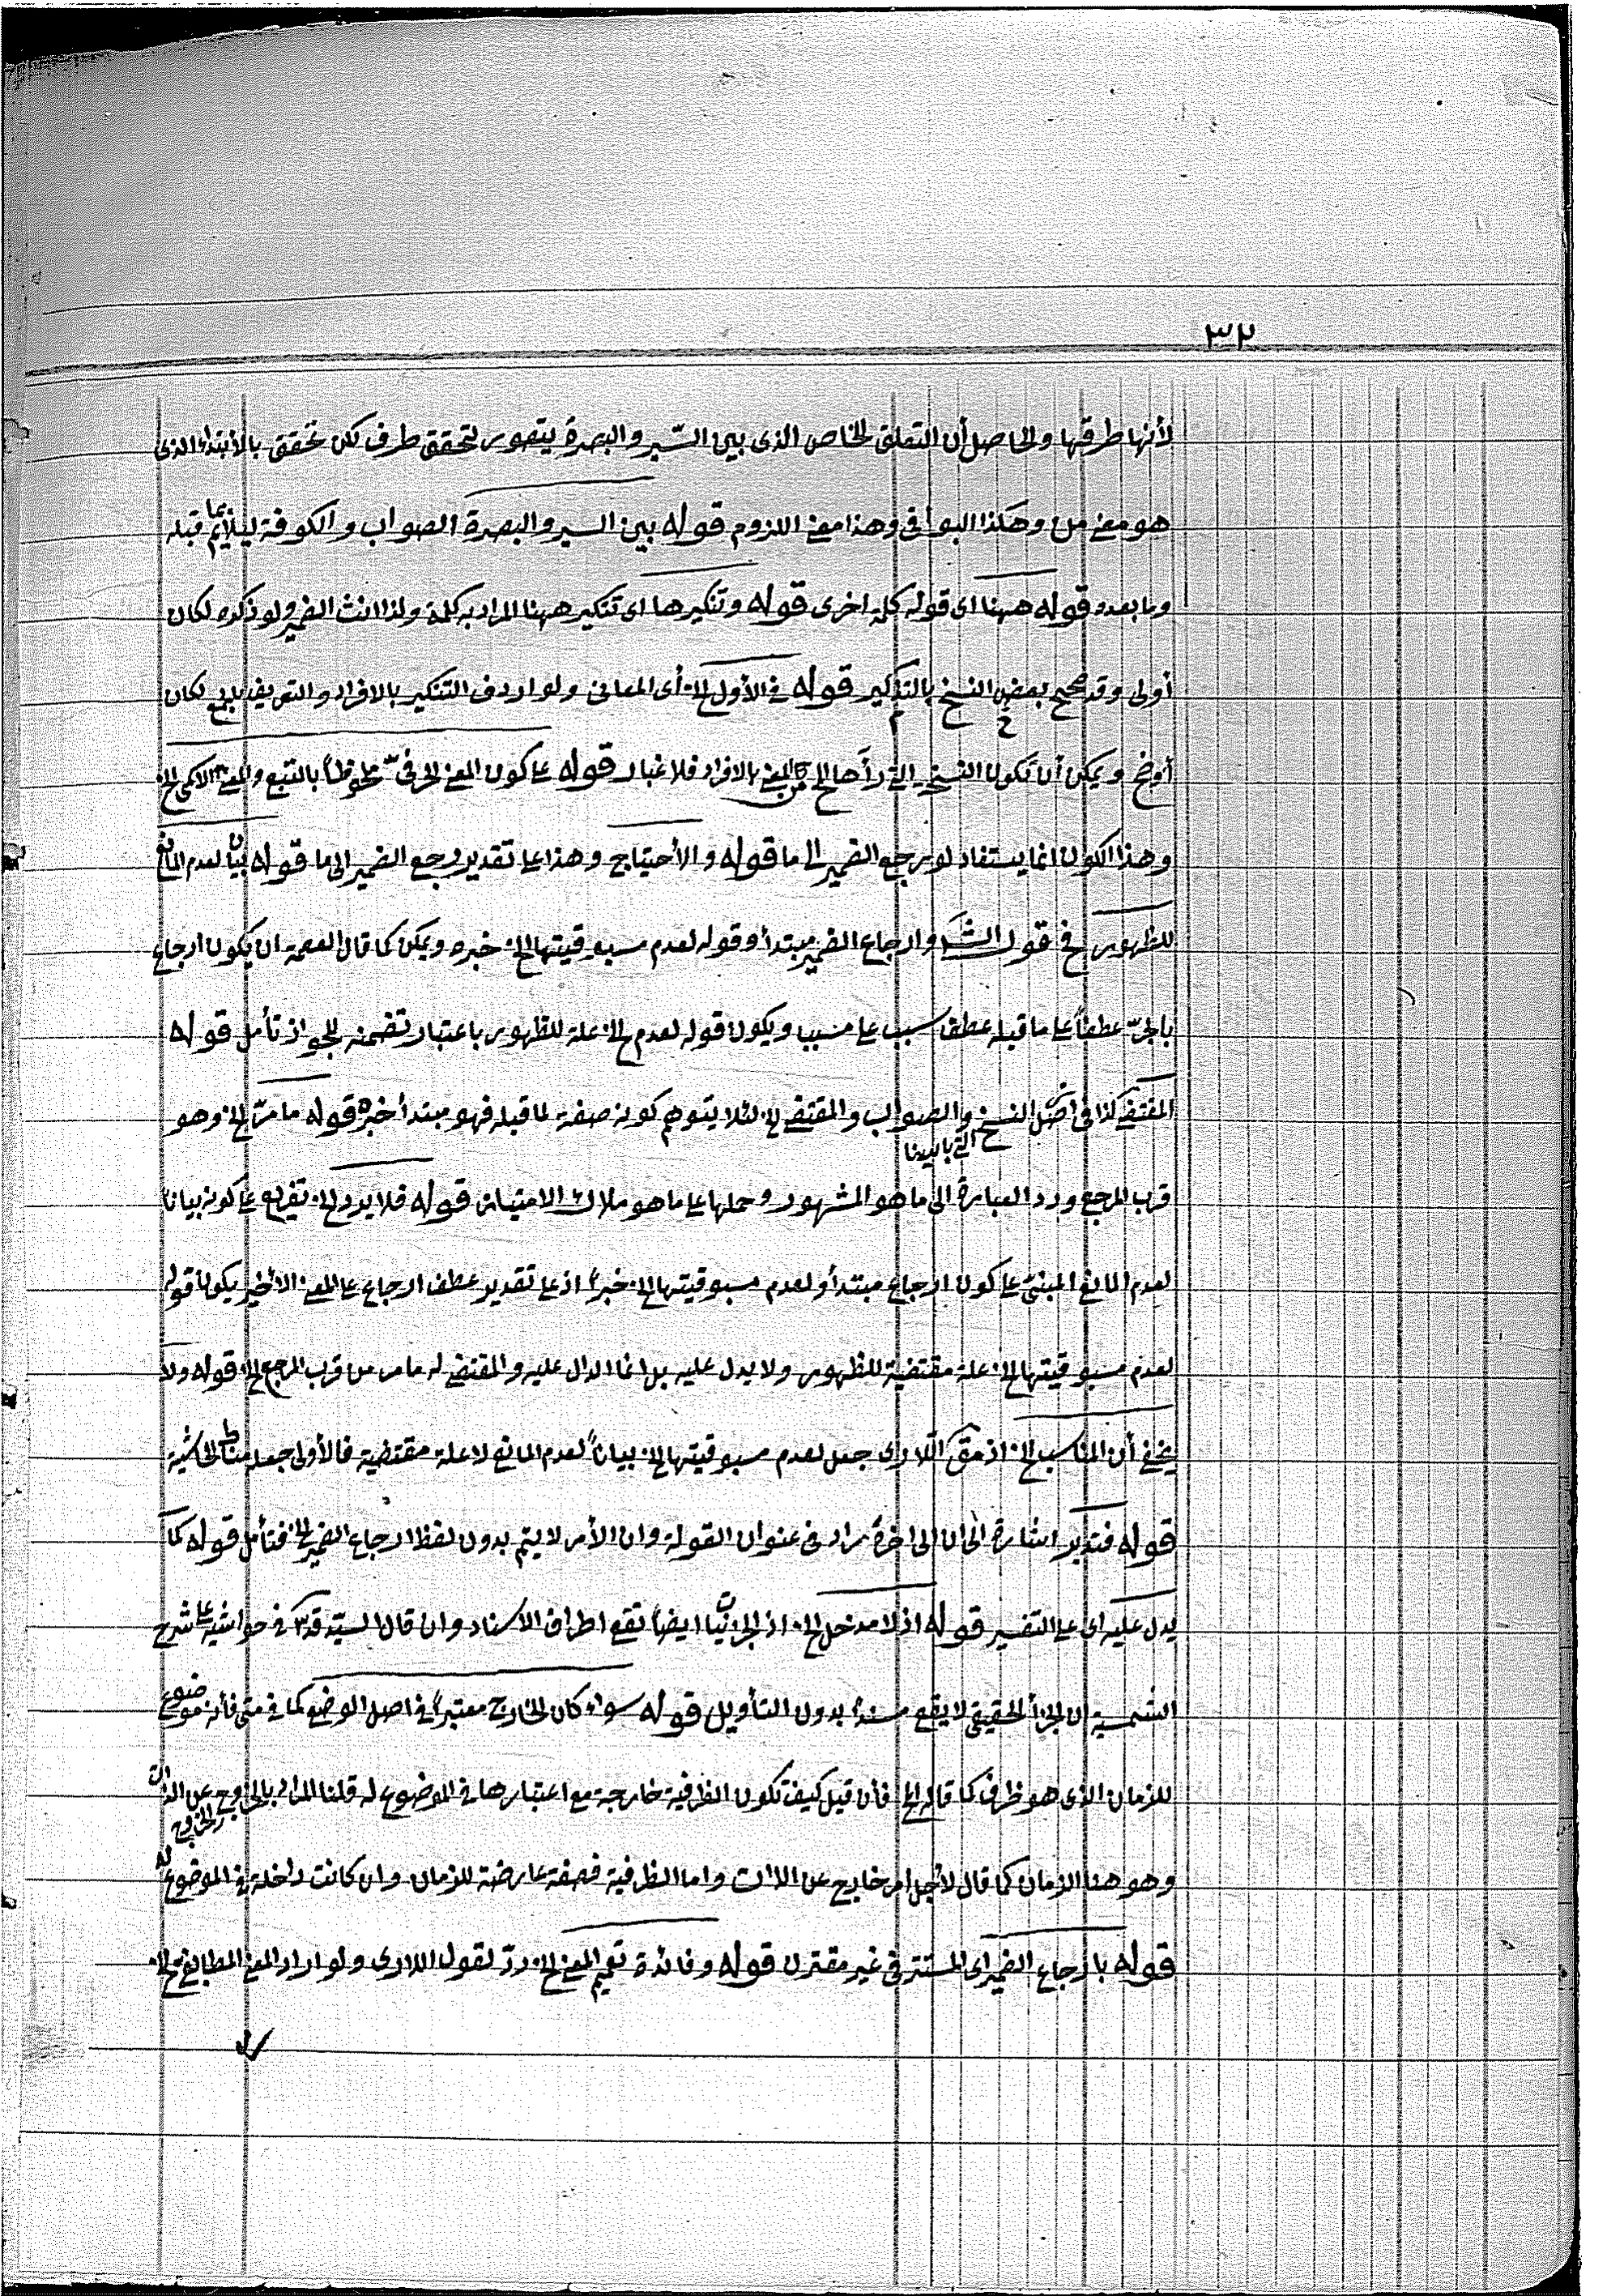 ٣٢
لأنها طرقها والحاصل أن التعلق الخاص الذى بين السّير والبصرة يتصور لتحقق طرف لكن تحقق بالأبتداء الذى
هو معنى من وهكذا البواقى وهذا معنى اللزوم قوله بين السير والبصرة الصواب والكوفة ليلايم بما قبله
وما بعده قوله ههنا اى قوله كلمة اخرى قوله وتنكيرها اى تنكير ههنا المراد به كلمة ولذا انث الضمير ولو ذكره لكان
أولى وقد صحح بعض النسخ بالتذكير قوله فى الأول الخ أى المعانى ولو اردف التنكير بالافراد والتعريف بالجمع لكان
أوضح ويمكن أن تكون النسخ التى رأها المعنى بالافراد فلا غبار قوله على كون المعنى الحرفى ملحوظاً بالتبع والمعنى الاسمى الخ
وهذا الكون انما يستفاد لو يرجع الضمير الى ما قوله والأحتياج وهذا على تقدير رجع الضمير الى ما قوله بيان لعدم المانع
للظهور فى قول الش وارجاع الضمير مبتدأ وقوله لعدم مسبوقيتها الخ خبره ويمكن كما قال العصمة ان يكون ارجاع
بالجرّ عطفاً على ما قبله عطف سبب على مسبب ويكون قوله لعدم الخ علة للظهور باعتبار تضمنه للجواز تأمل قوله
المقتضى كذا فى اصل النسخ التى بايدينا والصواب والمقتضى الخ لئلا يتوهم كونه صفة لما قبله فهو مبتدأ خبره قوله ما مرّ الخ وهو
قرب المرجع ورد العبارة الى ما هو المشهور وحملها على ما هو ملاك الامتياز قوله فلا يرد الخ تفريع على كونه بيانا
لعدم المانع المبنىّ على كون ارجاع مبتدأ ولعدم مسبوقيتها الخ خبراً اذ على تقدير عطف ارجاع على المعنى الأخير يكون قوله
لعدم مسبوقيتها الخ علة مقتضية للظهور ولا يدل عليه بل انما الدال عليه والمقتضى له ما مر من قرب المرجع الخ قوله ولا
يخفى أن المناسب الخ اذ محقق اللارى جعل لعدم مسبوقيتها الخ بياناً لعدم المانع لا علة مقتضية فالأولى جعله مناط الحاشية
قوله فتدبر اشارة الى ان الى اخره مراد فى عنوان القولة وان الأمر لا يتم بدون لفظ ارجاع الضمير الخ فتأمل قوله كما
يدل عليه اى على التفسير قوله اذ لا مدخل الخ اذ الجزئيّات ايضاً تقع اطراف الاسناد وان قال السيّد قد فى حواشيه على شرح
الشمسية ان الجزأ الحقيقى لا يقع مسنداً بدون التأويل قوله سواء كان الخارج معتبراً فى اصل الوضع كما فى متى فأنه موضوع
للزمان الذى هو ظرف كما قاله الخ فأن قيل كيف تكون الظرفية خارجة مع اعتبارها فى الموضوع له قلنا المراد بالخروج الخروج عن الذات
وهو هنا الزمان كما قال لأجل امر خارج عن الذات واما الظرفية فصفة عارضة للزمان وان كانت داخلة فى الموضوع له
قوله بأرجاع الضمير اى المستتر فى غير مقترن قوله وفائدة تعميم المعنى الخ ردّ لقول اللارى ولو اراد المعنى المطابقى الخ